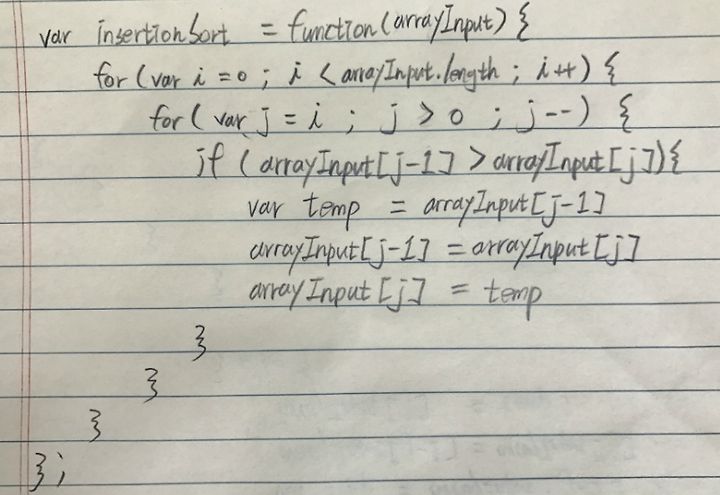 var insertionSort = function(arrayInput) {
for (var i = 0 ; i < arrayInput.length ; i++) {
for ( var j = i ; j > 0 ; j--) {
if ( arrayInput[j-1] > arrayInput[j]){
var temp = arrayInput[j-1]
arrayInput[j-1] = arrayInput[j]
arrayInput[j] = temp
}
}
}
};